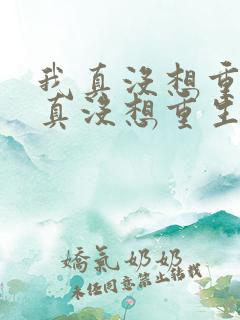 我真没想重
真没想重生
嬌氣奶奶
未经同意禁止转载